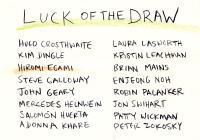 LUCK OF THE DRAW
HUGO CROSTHWAITE
KIM DINGLE
HIROMI EGAMI
STEVE GALLOWAY
JOHN GEARY
MERCEDES HELNWEIN
SALOMÓN HUERTA
ADONNA KHARE
LAURA LASWORTH
KRISTIN LEACHMAN
BRIAN MAINS
ENJEONG NOH
ROBIN PALANKER
JON SWIHART
PATTY WICKMAN
PETER ZOKOSKY